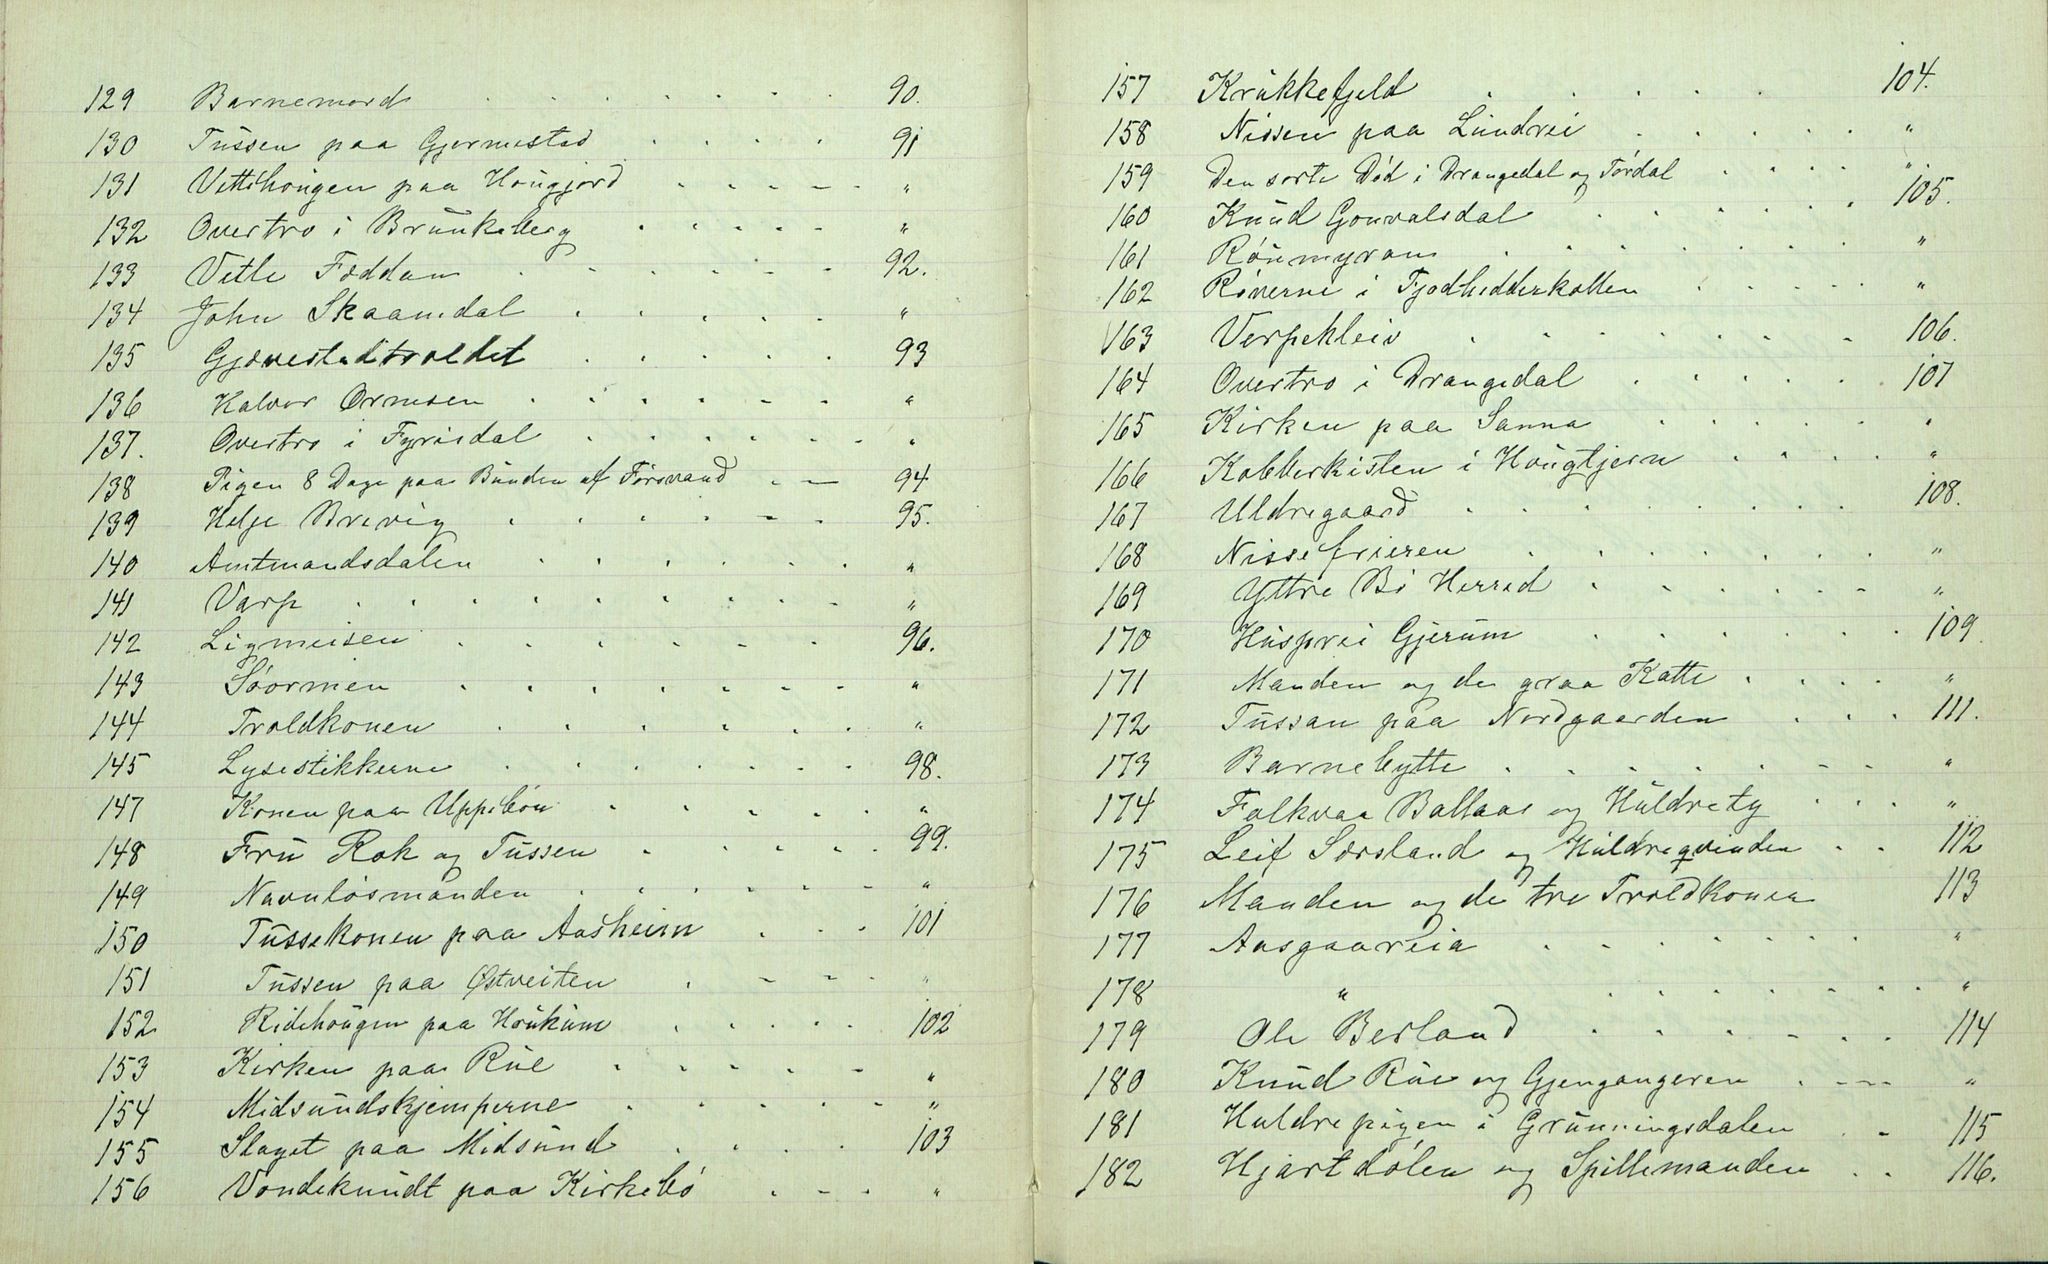 129 Barnemord . . . . . . . 90.
130 Tussen paa Gjermestad . . . . . 91
131 Vettehougen paa Hougjord . . . - - "
132 Overtro i Brunkeberg . . . - - "
133 Vetle Føddan . . . - - 92.
134 John Skaamdal . . . . . "
135 Gjøvestadtroldet . . . . . 93
136 Halvor Ormsen . . . . - - "
137. Overtro i Fyrisdal . . . . . - "
138 Pigen 8 Dage paa Bunden af Førsvand . - - 94
139 Helje Brevig . . . . - - 95.
140 Amtmandsdalen . . . . . . "
141 Varp . . . . . . . . - "
142 Ligmeisen . . . . . - - 96.
143 Søormen . . . . . . - "
144 Troldkonen . . . . . . "
145 Lysestikkerne . . . . . . 98.
147 Konen paa Uppebøn . . . . . "
148 Fru Rok og Tussen . . . . . 99.
149 Navnløsmanden . . . . . - - "
150 Tussekonen paa Aasheim . . . 101
151 Tussen paa Østveiten . . - - - "
152 Ridehougen paa Houkum . . . . . 102
153 Kirken paa Rue . . . . - - "
154 Midsundskjemperne . . . . - - "
155 Slaget paa Midsund . . . . 103
156 Vondeknudt paa Kirkebø . . - - "
157 Krukkefjeld . . . . . 104.
158 Nissen paa Lundrei . . . . . "
159 Den sorte Død i Drangedal og Tørdal . . . . "
160 Knud Gonvalsdal . . . . . . 105.
161 Røumyran . . . . . . . . "
162 Røverne i Fjodhedderkollen . . . . . "
163 Verpekleiv . . . . . . - 106.
164 Overtro i Drangedal . . . . . 107
165 Kirken paa Sanna . . . . . "
166 Kobberkisten i Hougtjern . . . . "
167 Uldregaard . . . . . . . 108.
168 Nissefrieren . . . . . . "
169 Yttre Bø Herred . . . . . - "
170 Husprei Gjerum . . . . . . 109.
171 Manden og de graa Katte . . . . "
172 Tussan paa Nordgaarden . . . 111.
173 Barnebytte . . . . . - - "
174 Folkvar Ballaas og Huldrety . . . "
175 Leif Sørsland og Huldreqvinden . . 112
176 Manden og de tre Troldkoner 113
177 Aasgaareia . . . . . . "
178 " . . . . . . . . "
179 Ole Berland . . . . . . 114
180 Knud Rue og Gjengangeren . - - - "
181 Huldrepigen i Grunningsdalen . - 115
182 Hjartdølen og Spillemanden . . 116.